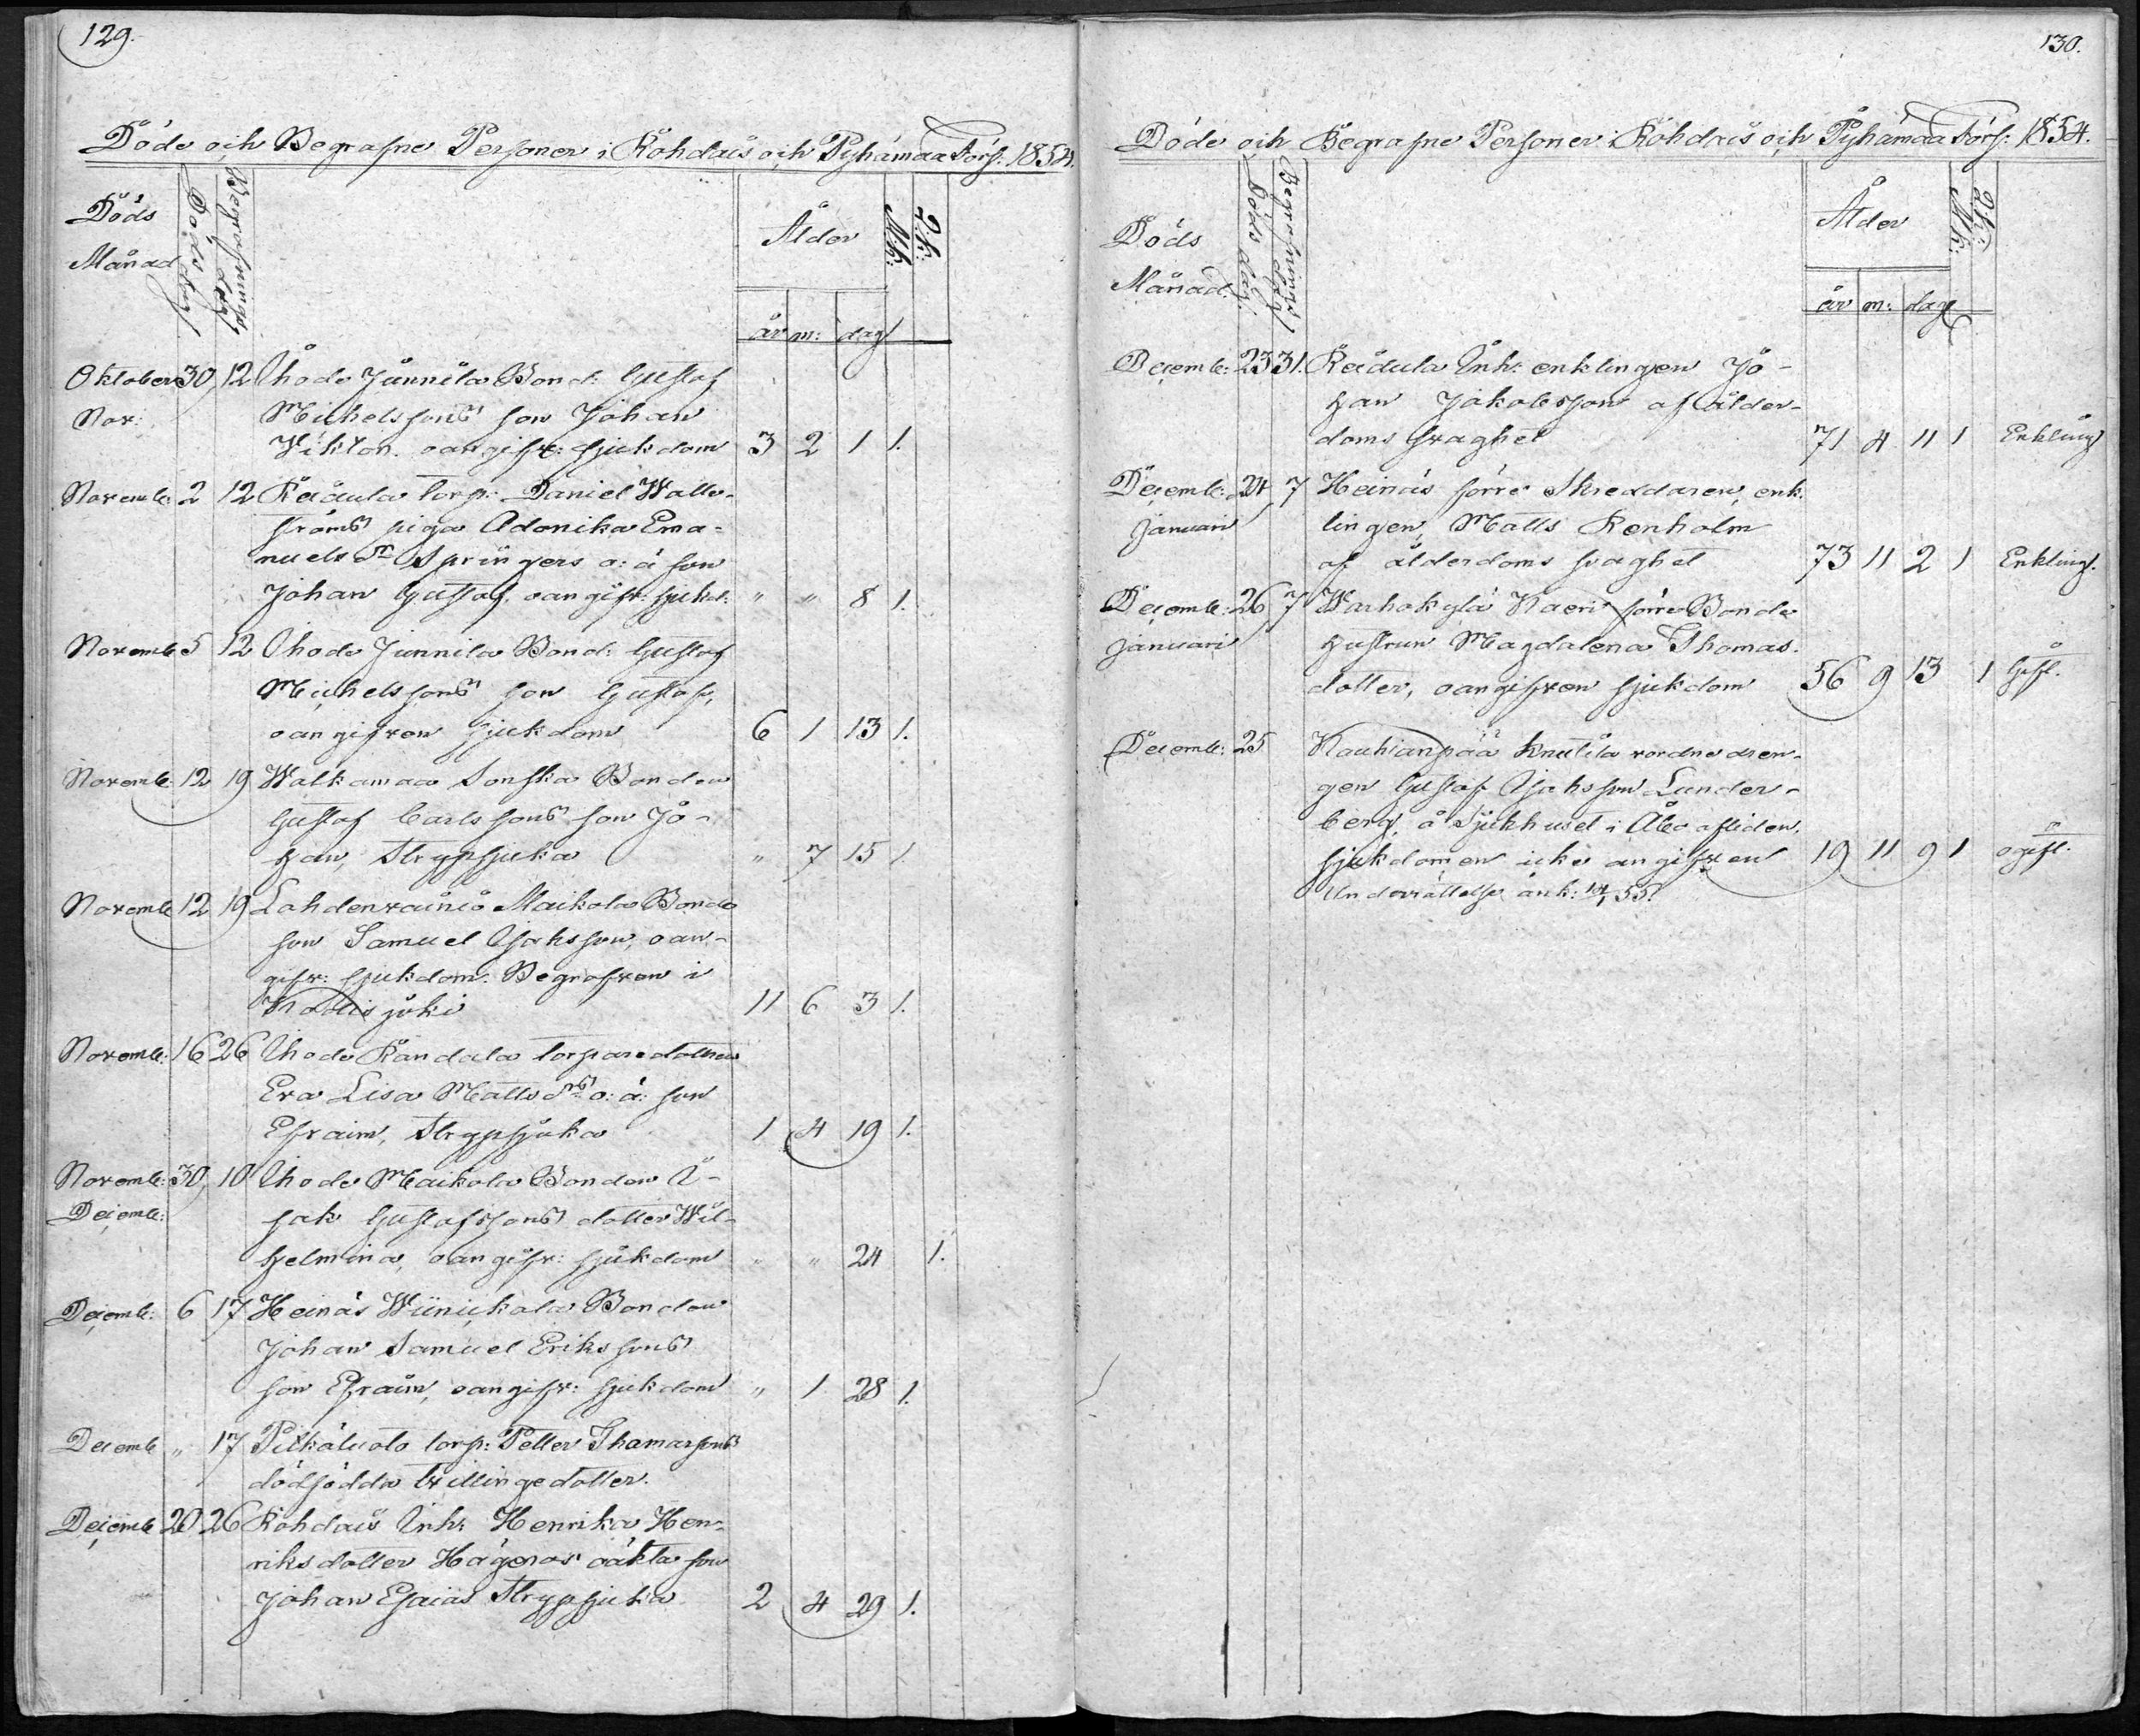 129.
Döde och Begrafne Personer i Röhdais och Pyhämaa Förs: 1854.
Döds
Månad
Döds dag
Begrafnings dag
Ålder
år m: dag
M.k:
Q.k:
Oktober 30 12 Ihode Junnila Bond: Gustaf
Nov: Michelssons son Johan
Viktor. oangifv: sjukdom 3 2 1 1.
Novemb: 2 12 Räädula torp: Daniel Wall-
ströms piga Adonika Ema-
nuels dr Springers o: ä son
Johan Gustaf, oangifv: sjukd: " " 8 1.
Novemb 5 12 Ihode Junnila Bond: Gustaf
Michelssons son Gustaf,
oangifven sjukdom 6 1 13 1.
Novemb: 12 19 Walkamaa Sonska Bonden
Gustaf Carlssons son Jo-
han, Strypsjuka " 7 15 1.
Novemb 12 19 Lahdenvainio Maikola Bonde
son Samuel Isaksson, oan-
gifv: sjukdom. Begrafven i
Kodisjoki 11 6 3 1.
Novemb: 16 26 Ihode Randala torparedottren
Eva Lisa Matts drs o: ä: son
Efraim, Strypsjuka 1 4 19 1.
Novemb: 30 10 Ihode Maikola Bonden I-
Decemb: sak Gustafssons dotter Wil-
helmina, oangifv: sjukdom " " 24 1.
Decemb: 6 17 Heinäs Wiinickala Bonden
Johan Samuel Erikssons
son Efraim, oangifv: sjukdom " 1 28 1.
Decemb " 17 Pitkäluoto torp: Petter Thomassons
dödfödda tvillingedotter.
Decemb 20 26 Rohdais Inh: Henrika Hen-
riksdotter Hägeros oäkta son
Johan Esaias Strypsjuka 2 4 29 1.
130.
Döde och Begrafne Personer i Röhdais och Pyhämaa Förs: 1854.
Döds
Månad.
Döds dag:
Begrafnings dag
Ålder
år m: dag
M.k:
Q.k:
Decemb: 23 31. Räädula Inh: enklingen Jo-
han Jakobsson af ålder-
doms svaghet 71 4 11 1 Enkling
Decemb: 24 7 Heinäs förre Skreddaren, enk-
Januari lingen, Matts Renholm
af ålderdoms svaghet 73 11 2 1 Enkling.
Decemb: 26 7 Warhokylä Kaeri förre Bonde
Januari hustrun Magdalena Thomas-
dotter, oangifven sjukdom 56 9 13 1 Gift.
Decemb: 25 Kauhianpää Knutila vordne dren-
gen Gustaf Isaksson Lunder-
berg, å Sjukhuset i Åbo afliden,
sjukdomen icke angifven 19 11 9 1 ogift.
Underrättelse ank: